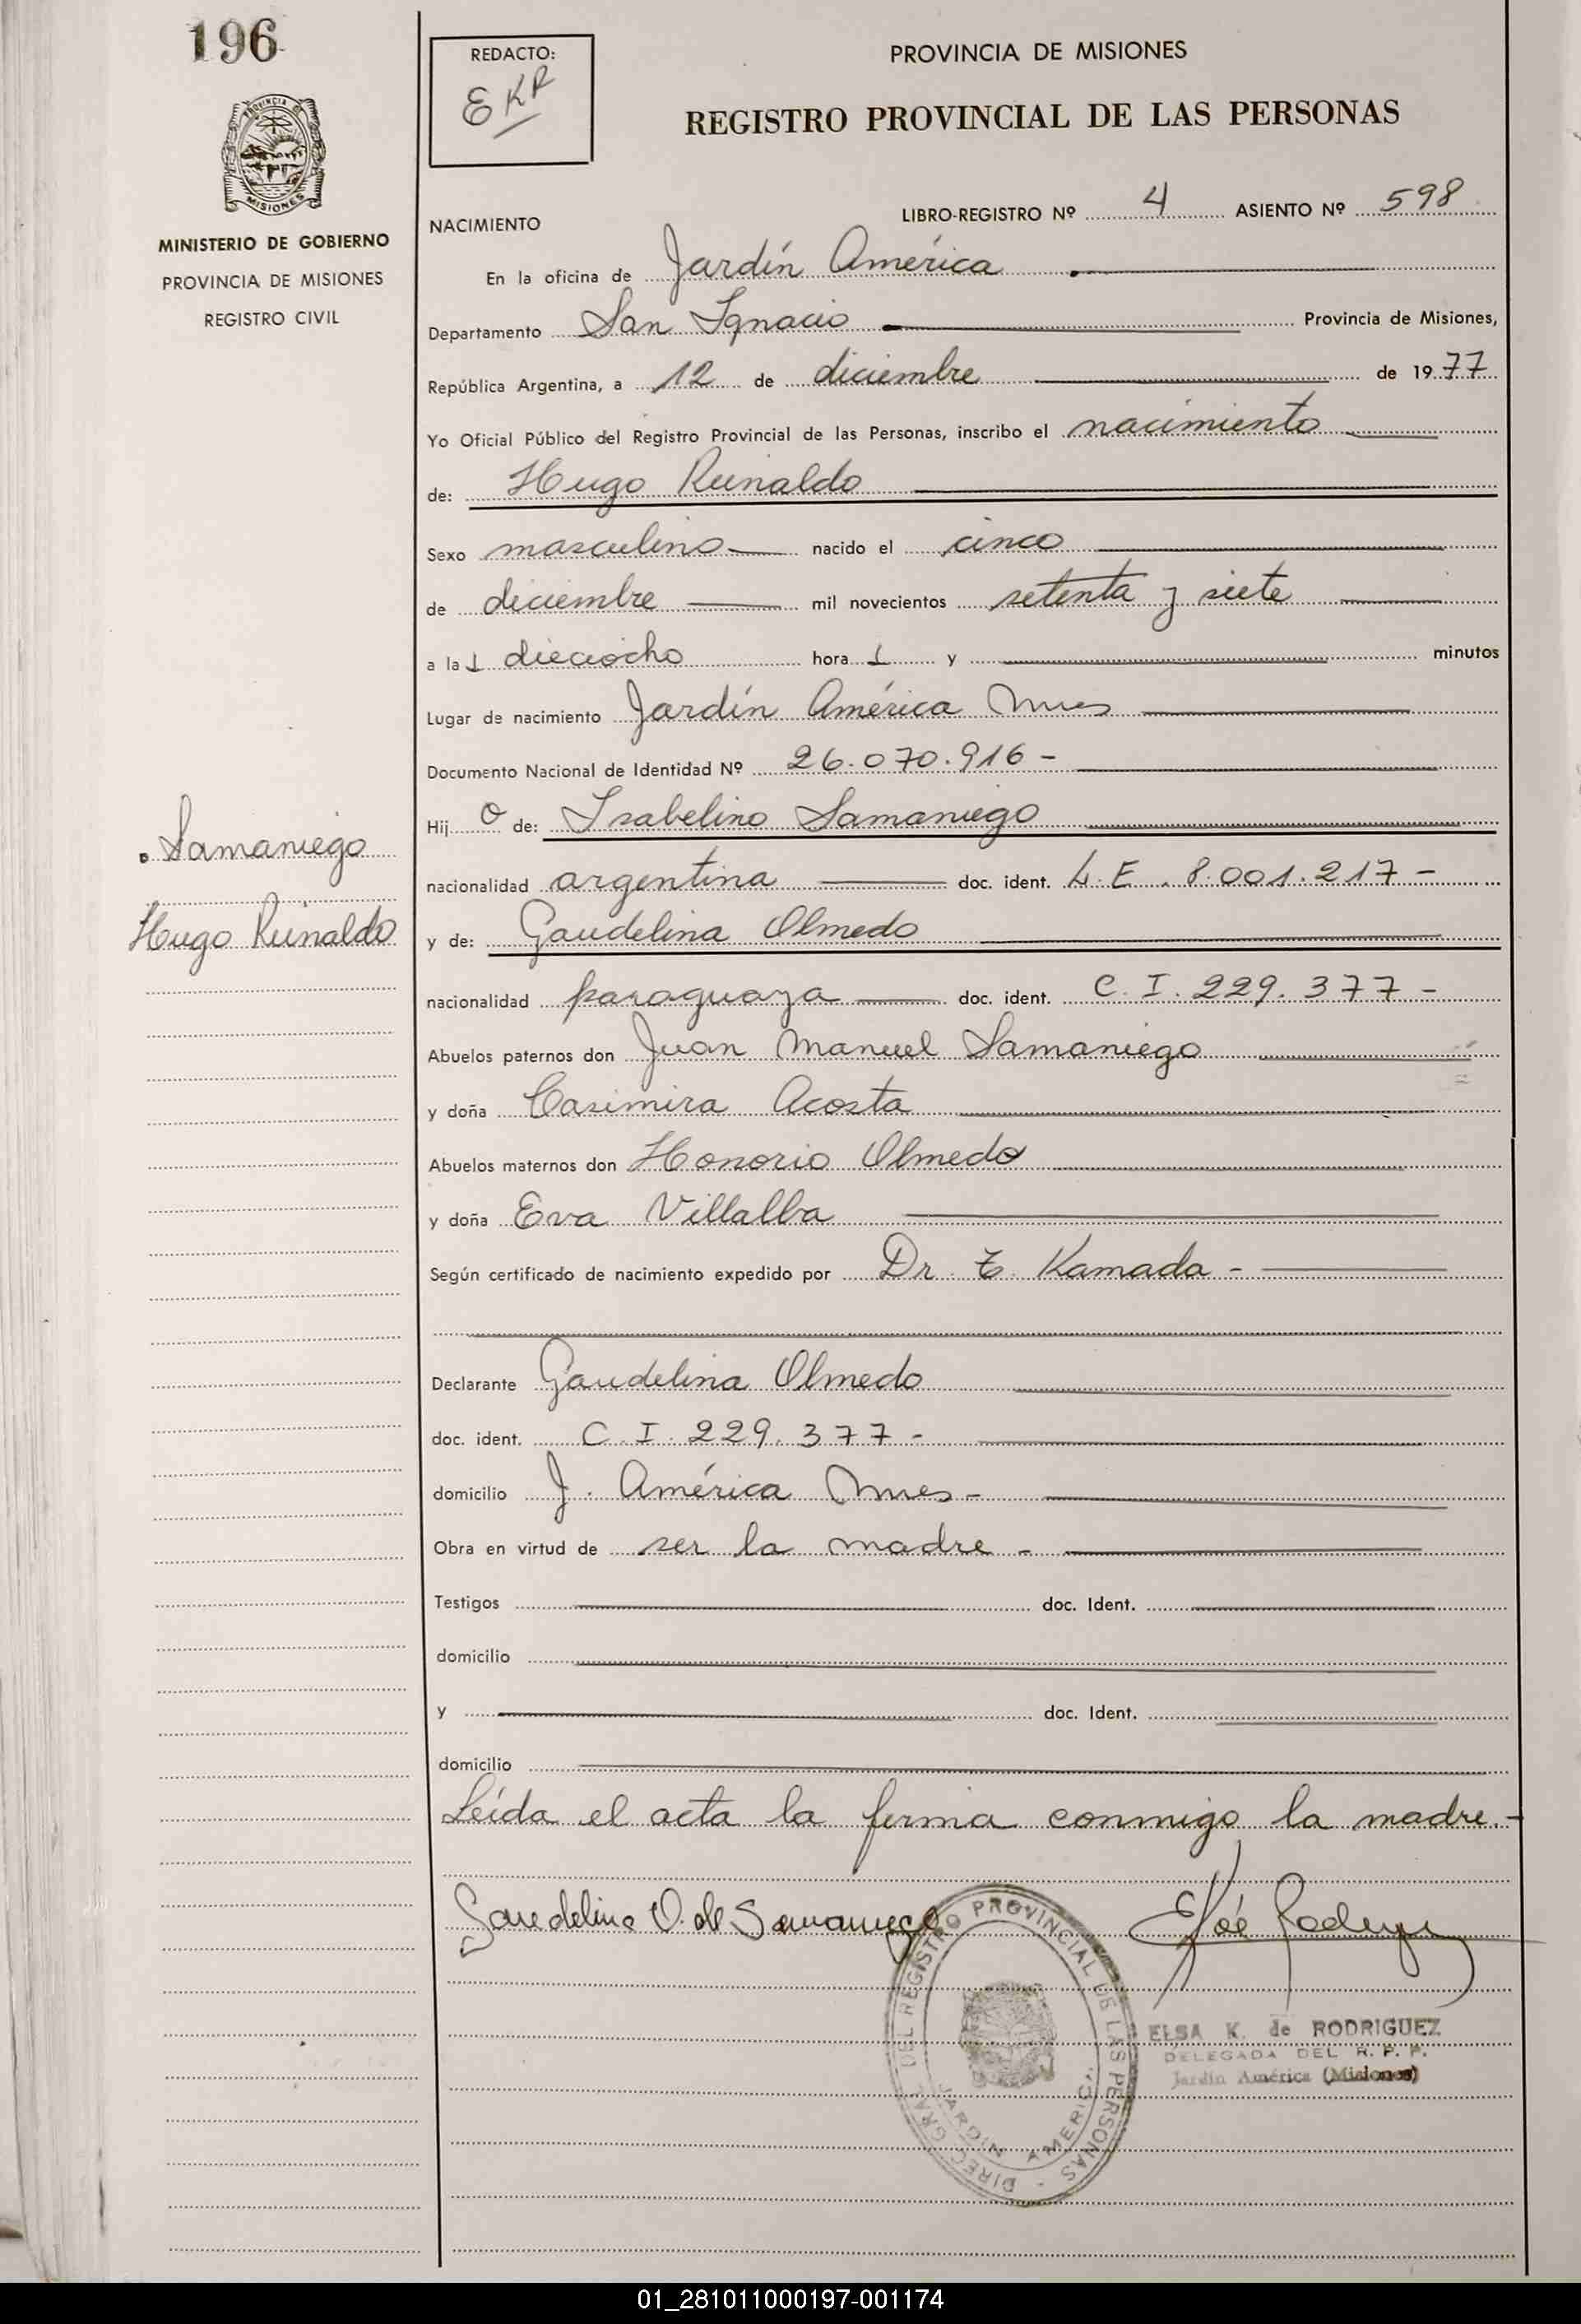 196
MINISTERIO DE GOBIERNO
PROVINCIA DE MISIONES
REGISTRO CIVIL
REDACTO:
EKR
PROVINCIA DE MISIONES
REGISTRO PROVINCIAL DE LAS PERSONAS
NACIMIENTO
LIBRO-REGISTRO Nº 4 ASIENTO Nº 598
En la oficina de Jardín América
Departamento San Ignacio Provincia de Misiones,
República Argentina, a 12 de diciembre de 1977
Yo Oficial Público del Registro Provincial de las Personas, inscribo el nacimiento
de: Hugo Reinaldo
Sexo masculino nacido el cinco
de diciembre mil novecientos setenta y siete
a la s dieciocho hora s y minutos
Lugar de nacimiento Jardín América Mnes
Documento Nacional de Identidad Nº 26.070.916 -
Hij o de: Isabelino Samaniego
Samaniego
nacionalidad argentina doc. ident. L.E. 8.001.217 -
Hugo Reinaldo
y de: Gaudelina Olmedo
nacionalidad paraguaya doc. ident. C.I. 229.377 -
Abuelos paternos don Juan Manuel Samaniego
y doña Casimira Acosta
Abuelos maternos don Honorio Olmedo
y doña Eva Villalba
Según certificado de nacimiento expedido por Dr. T. Kamada -
Declarante Gaudelina Olmedo
doc. ident. C.I. 229.377 -
domicilio J. América Mnes -
Obra en virtud de ser la madre -
Testigos doc. Ident.
domicilio
y doc. Ident.
domicilio
Leída el acta la firma conmigo la madre.-
Gaudelina O. de Samaniego
DIREC. GRAL. DEL REGISTRO PROVINCIAL DE LAS PERSONAS -
JARDIN AMERICA
PROVINCIA DE MISIONES
ELSA K. de RODRIGUEZ
DELEGADA DEL R. P. P.
Jardín América (Misiones)
01_281011000197-001174